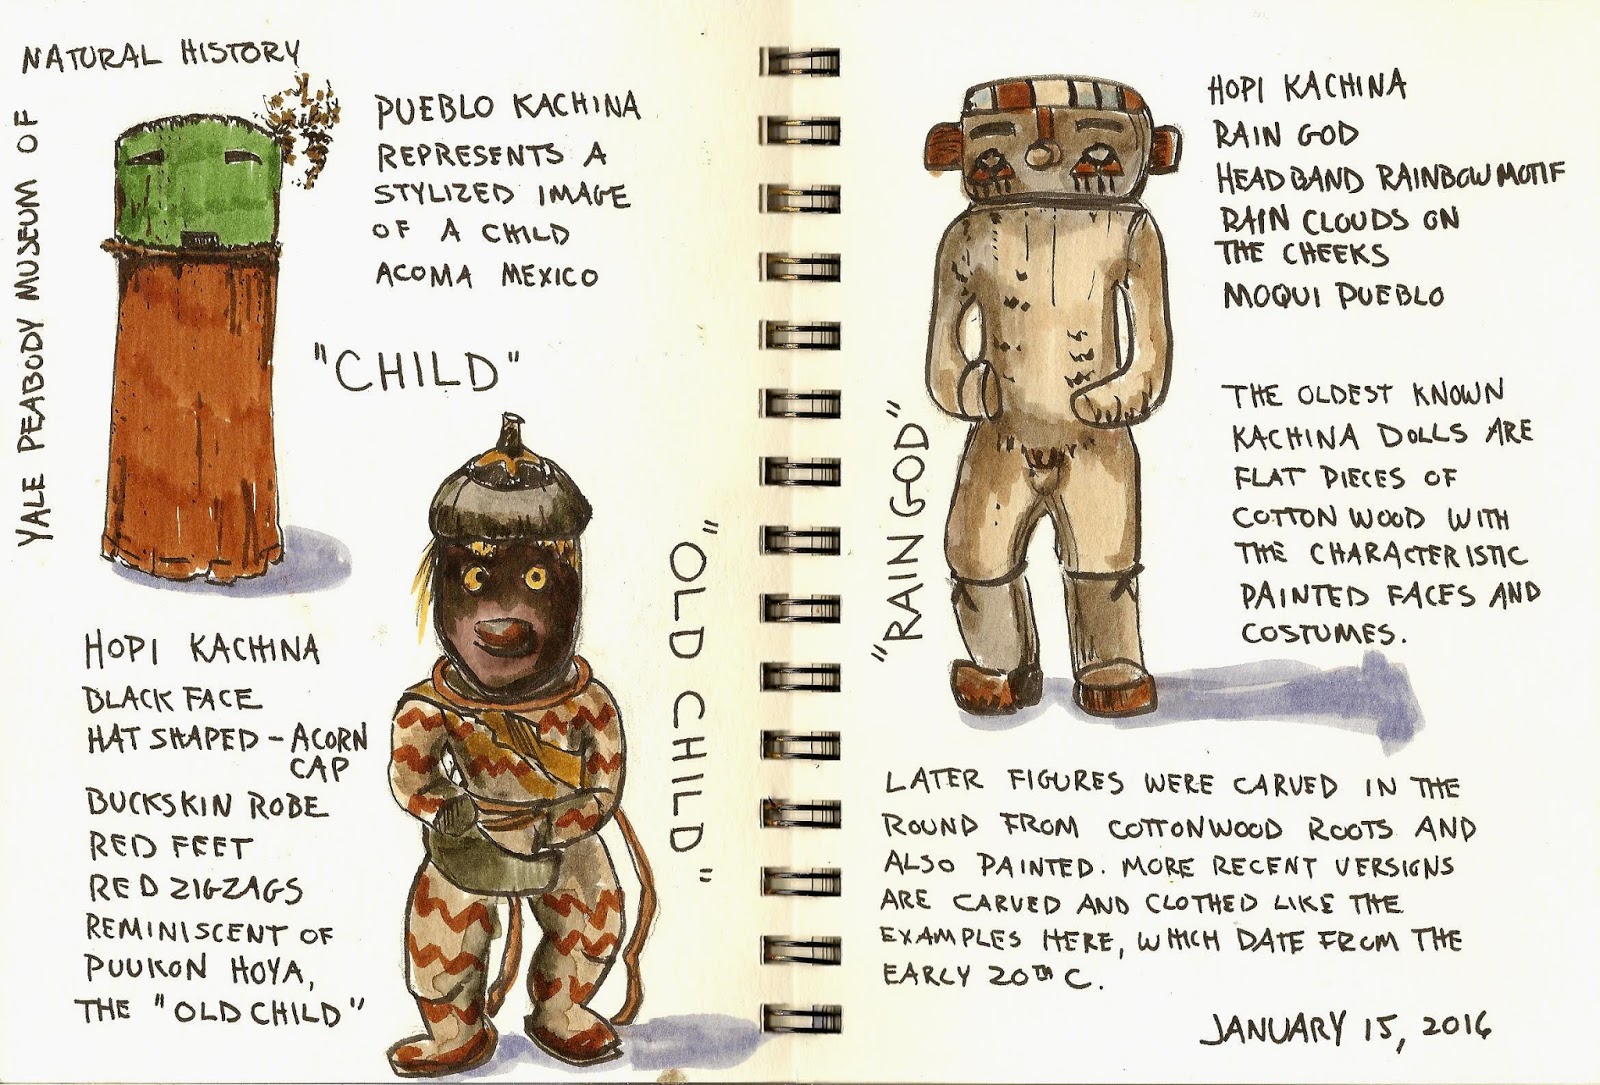 NATURAL HISTORY
YALE PEABODY MUSEUM OF
PUEBLO KACHINA
REPRESENTS A
STYLIZED IMAGE
OF A CHILD
ACOMA MEXICO
"CHILD"
HOPI KACHINA
BLACK FACE
HAT SHAPED - ACORN
CAP
BUCKSKIN ROBE
RED FEET
RED ZIGZAGS
REMINISCENT OF
PUUKON HOYA,
THE "OLD CHILD"
"OLD CHILD"
HOPI KACHINA
RAIN GOD
HEADBAND RAINBOW MOTIF
RAIN CLOUDS ON
THE CHEEKS
MOQUI PUEBLO
"RAIN GOD"
THE OLDEST KNOWN
KACHINA DOLLS ARE
FLAT PIECES OF
COTTON WOOD WITH
THE CHARACTERISTIC
PAINTED FACES AND
COSTUMES.
LATER FIGURES WERE CARVED IN THE
ROUND FROM COTTONWOOD ROOTS AND
ALSO PAINTED. MORE RECENT VERSIONS
ARE CARVED AND CLOTHED LIKE THE
EXAMPLES HERE, WHICH DATE FROM THE
EARLY 20TH C.
JANUARY 15, 2014